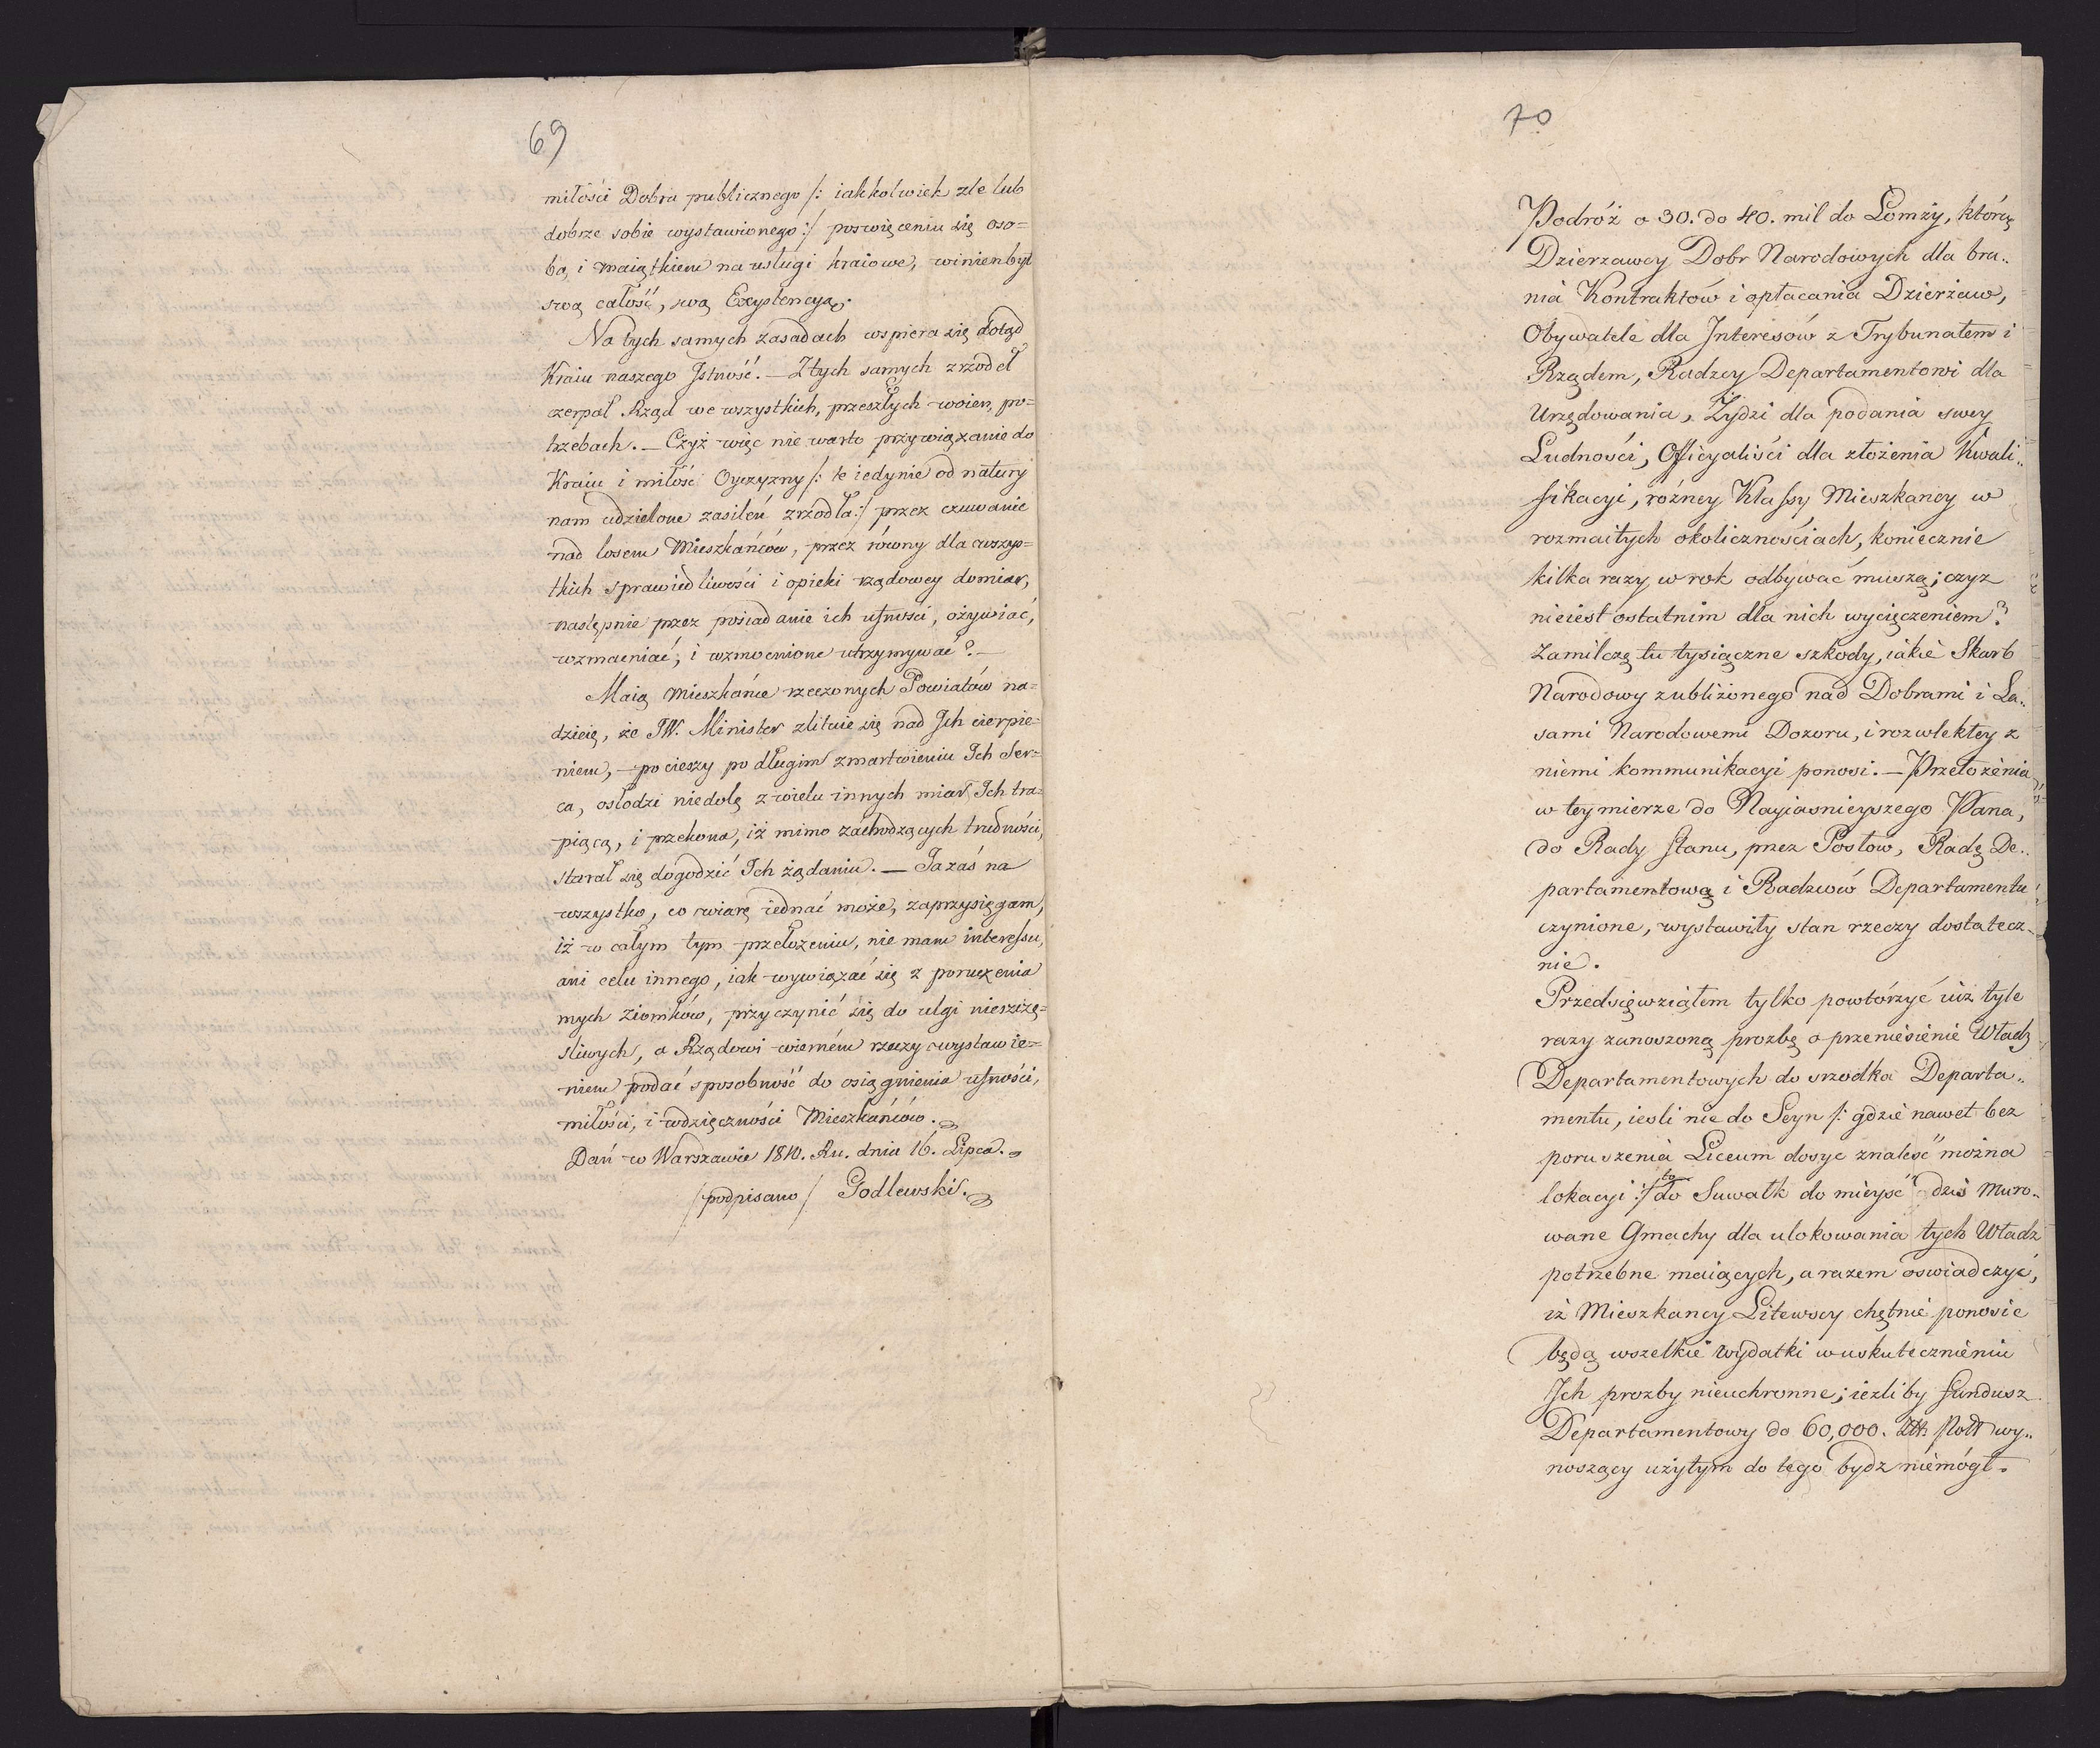 69
miłości Dobra publicznego /: iakkolwiek zle lub
dobrze sobie wystawionego :/ poswięceniu się oso=
bą, i maiątkiem na usługi kraiowe, winien był
swą całość, swą Exystencyą.
Na tych samych zasadach wspiera się dotąd
Kraiu naszego Jstność. — Z tych samych zrzodeł
czerpał Rząd we wszystkich, przeszłych woien, po=
trzebach. — Czyż więc nie warto przywiązanie do
Kraiu i miłość Oyczyzny /: te iedynie od natury
nam udzielone zasileń zrzodła :/ przez czuwanie
nad losem Mieszkańców, przez równy dla wszys=
tkich sprawiedliwości i opieki rządowey domiar,
następnie przez posiadanie ich ufności, ożywiać,
wzmacniać, i wzmocnione utrzymywać? —
Maią Mieszkańce rzeczonych Powiatów na=
dzieię, że JW. Minister zlituie się nad Jch cierpie=
niem, — pocieszy po długim zmartwieniu Jch Ser=
ca, osłodzi niedolę z wielu innych miar Jch tra=
piącą, i przekona, iż mimo zachodzących trudności,
starał się dogodzić Jch żądaniu. — Ja zaś na
wszystko, co wiarę iednać może, zaprzysięgam,
iż w całym tym przełożeniu, nie mam interessu,
ani celu innego, iak wywiązać się z poruczenia
mych Ziomków, przyczynić się do ulgi nieszczę=
śliwych, a Rządowi wierném rzeczy wystawie=
niem podać sposobność do osiągnienia ufności,
miłości, i wdzięczności Mieszkańców.
Dań w Warszawie 1810. Ru. dnia 16. Lipca.
/podpisano/ Godlewski.
70
Podróż o 30. do 40. mil do Łomży, którą
Dzierzawcy Dobr Narodowych dla bra„
nia Kontraktów i opłacania Dzierżaw,
Obywatele dla Jnteresów z Trybunałem i
Rządem, Radzcy Departamentowi dla
Urzędowania, Żydzi dla podania swey
Ludności, Officyaliści dla złożenia Kwali„
fikacyi, różney Klassy Mieszkancy w
rozmaitych okolicznościach, koniecznie
kilka razy w rok odbywać muszą; czyz
nieiest ostatnim dla nich wycięczeniem?
Zamilczę tu tysiączne szkody, iakie Skarb
Narodowy z ubliżonego nad Dobrami i La„
sami Narodowemi Dozoru, i rozwlekłey z
niemi kommunikacyi ponosi. — Przełożenia
w tey mierze do Nayiasnieyszego Pana,
do Rady Stanu, przez Posłow, Radę De„
partamentową i Radzców Departamentu
czynione, wystawiły stan rzeczy dostatecz„
nie.
Przedsięwziąłem tylko powtórzyć iuż tyle
razy zanoszoną prozbę o przeniesienie Władz
Departamentowych do srzodka Departa„
mentu, iesli nie do Seyn /: gdzie nawet bez
poruszenia Liceum dosyc znaleść można
lokacyi :/ to do Suwałk do mieysc dziś Muro„
wane Gmachy dla ulokowania tych Władz
potrzebne maiących, a razem oswiadczyć,
iż Mieszkancy Litewscy chętnie ponosic
będą wszelkie wydatki w uskutecznieniu
Jch prozby nieuchronne; ieżliby fundusz
Departamentowy do 60,000. Złt Poll wy„
noszący użytym do tego bydz niemógł.